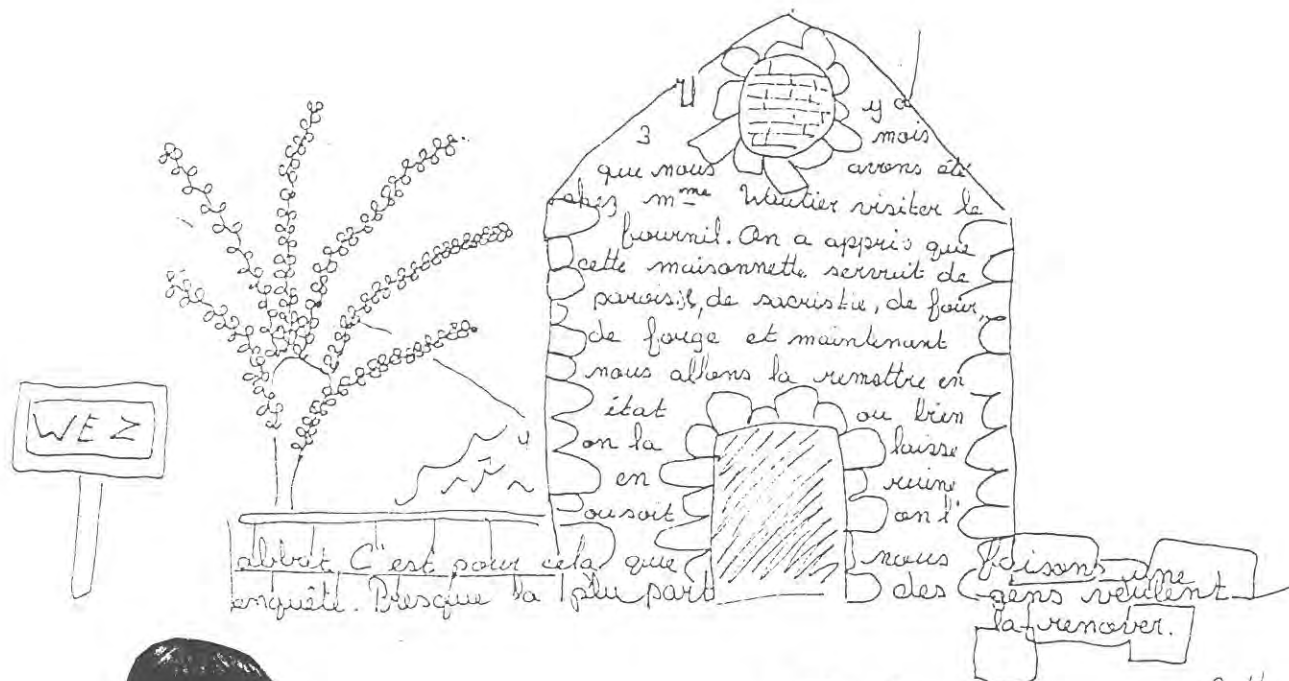 Il y a
3 mois
que nous avons été
chez Mme Wautier visiter le
fournil. On a appris que
cette maisonnette servait de
de sacristie, de four,
de forge et maintenant
nous allons la remettre en
état ou bien
on la laisse
en ruine
ou soit on l'
abbat C'est pour cela que nous faisons une
enquête. Presque la plu part des gens veulent
la renover.
WEZ